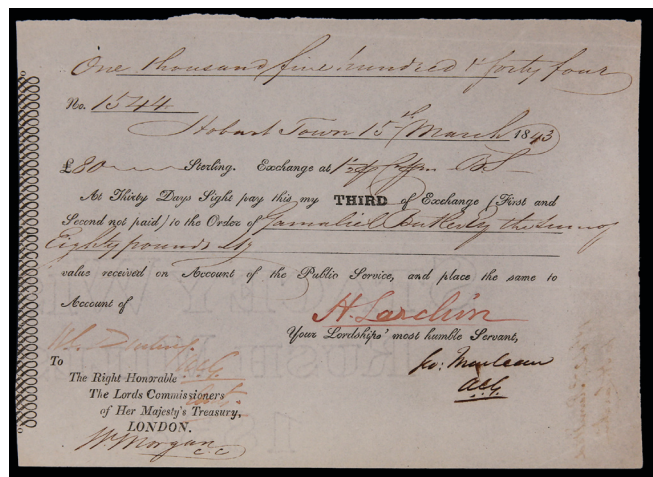 One thousand five hundred & forty four
No. 1544
Hobart Town 15th March 1843
£80 Sterling. Exchange at 1½
At Thirty Days Sight pay this my THIRD of Exchange (First and
Second not paid) to the Order of Gamaliel Butler Esq the sum of
Eighty pounds Stg
value received on Account of the Public Service, and place the same to
Account of
Your Lordships' most humble Servant,
ACG
To
The Right Honorable
The Lords Commissioners
of Her Majesty's Treasury,
LONDON.
Wm Morgan
C.C.